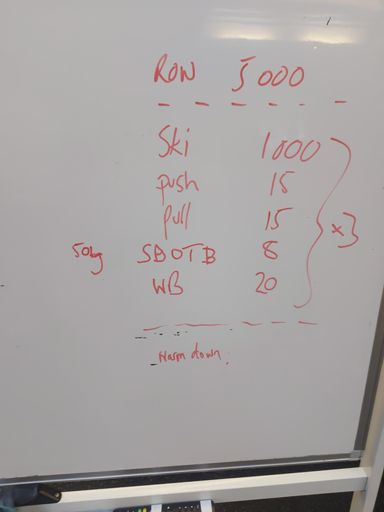 Row 5000
Ski 1000
push 15
pull 15
50kg SBOTB 8
WB 20
x3
Warm down.